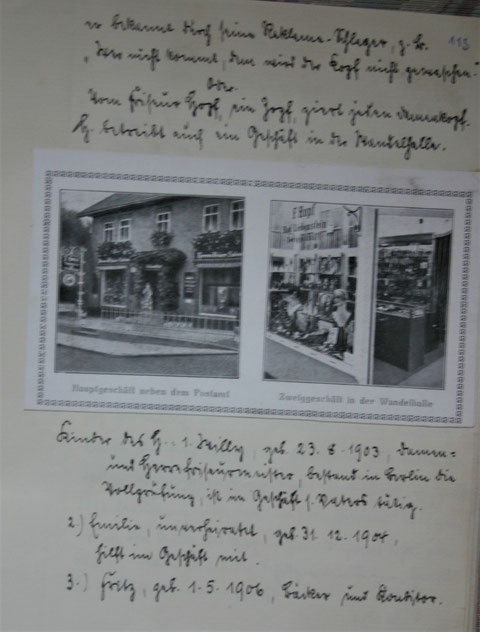 er bekannt durch seine Reklame-Schlager, z. B. 113
„Wer nicht kommt, dem wird der Kopf nicht gewaschen."
Oder
Vom Friseur Hopf, ein Zopf, ziert jeden Damenkopf.
H. betreibt auch ein Geschäft in der Wandelhalle.
F. Hopf
Hauptgeschäft neben dem Postamt
Zweiggeschäft in der Wandelhalle
Kinder des H. 1. Willy, geb. 23. 8. 1903, Damen=
und Herrenfriseurmeister, bestand in Berlin die
Vollprüfung, ist im Geschäft s. Vaters tätig.
2.) Emilie, unverheiratet, geb. 31. 12. 1904,
hilft im Geschäft mit.
3.) Fritz, geb. 1. 5. 1906, Bäcker und Konditor.